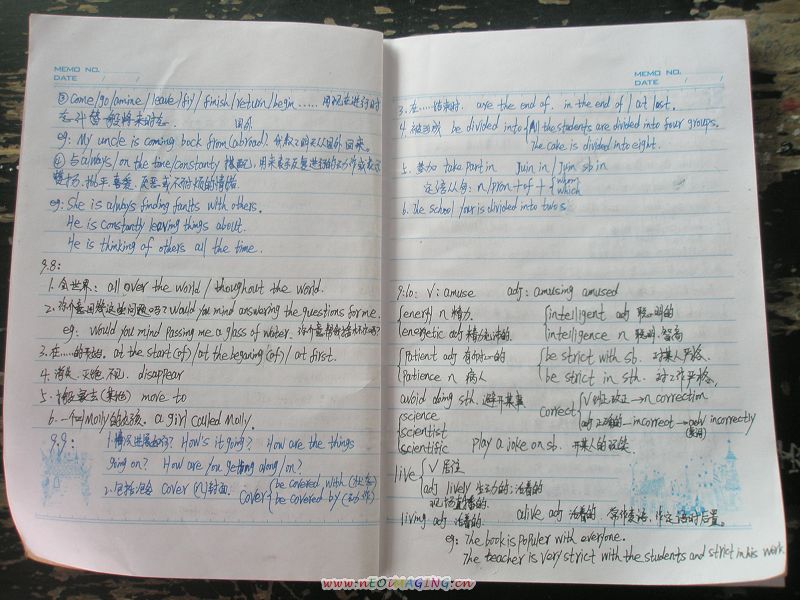 MEMO NO.
DATE / /
③ Come/go/amine/leave/fly/finish/return/begin ...... 用现在进行时
表示将来时态。
国外
eg: My uncle is coming bock from (abroad)
④ 与always/on the tone/constanty 搭配, 用来表示反复进行的动作或表示
赞扬、
eg: She is always finding faults with others.
He is constantly leaving things about.
He is thinking of others all the time.
9.8:
1. 全世界: all over the world / thoughout the world.
2. 你介意回答这些问题吗? Would you mind answering the questions for me.
eg: Would you mind passing me a glass of water.
3. 在……的开始. at the start (of) / at the beganing (of) / at first.
4. 消失. 灭绝. 不见. disappear
5. 搬家去(某地) move to
6. 一个叫Molly的女孩. a girl called Molly.
9.9: 1. 情况进展如何? How's it going? How are the things
going on? How are you getting along/on?
2. 包括 cover (n) 封面. cover { be covered with (状态)
be covered by (动作)
MEMO NO.
DATE / /
3. 在……结束时. are the end of. in the end / at last.
4. 被分成 be divided into { All the students are divided into four groups.
The cake is divided into eight.
5. 参加 take part in Juin in / Juin sb in
定语从句: n/pron + of + { whom
which
6. The school four is divided into two s
9.10: V: amuse adj: amusing amused
{ eneryl n 精力. { intelligent adj 聪明的
energetic adj 精力充沛的. intelligence n 聪明. 智高
{ Patient adj 有耐心的 { be strict with sb. 对某人严格.
Patience n 病人 be strict in sth. 对工作严格.
avoid doing sth. 避开某事 correct { V 纠正 改正 → n correction
adj 正确的 → incorrect → adv incorrectly
{ science
scientist
scientific play a joke on sb. 开某人的玩笑
live { V 居住
adj lively 生动的; 活着的
现场直播的.
living adj 活着的. alive adj 活着的 常作表语, 作定语时后置.
eg: The book is populer with everyone.
The teacher is very strict with the students and strict in his work
www.nEOiMAGING.cn